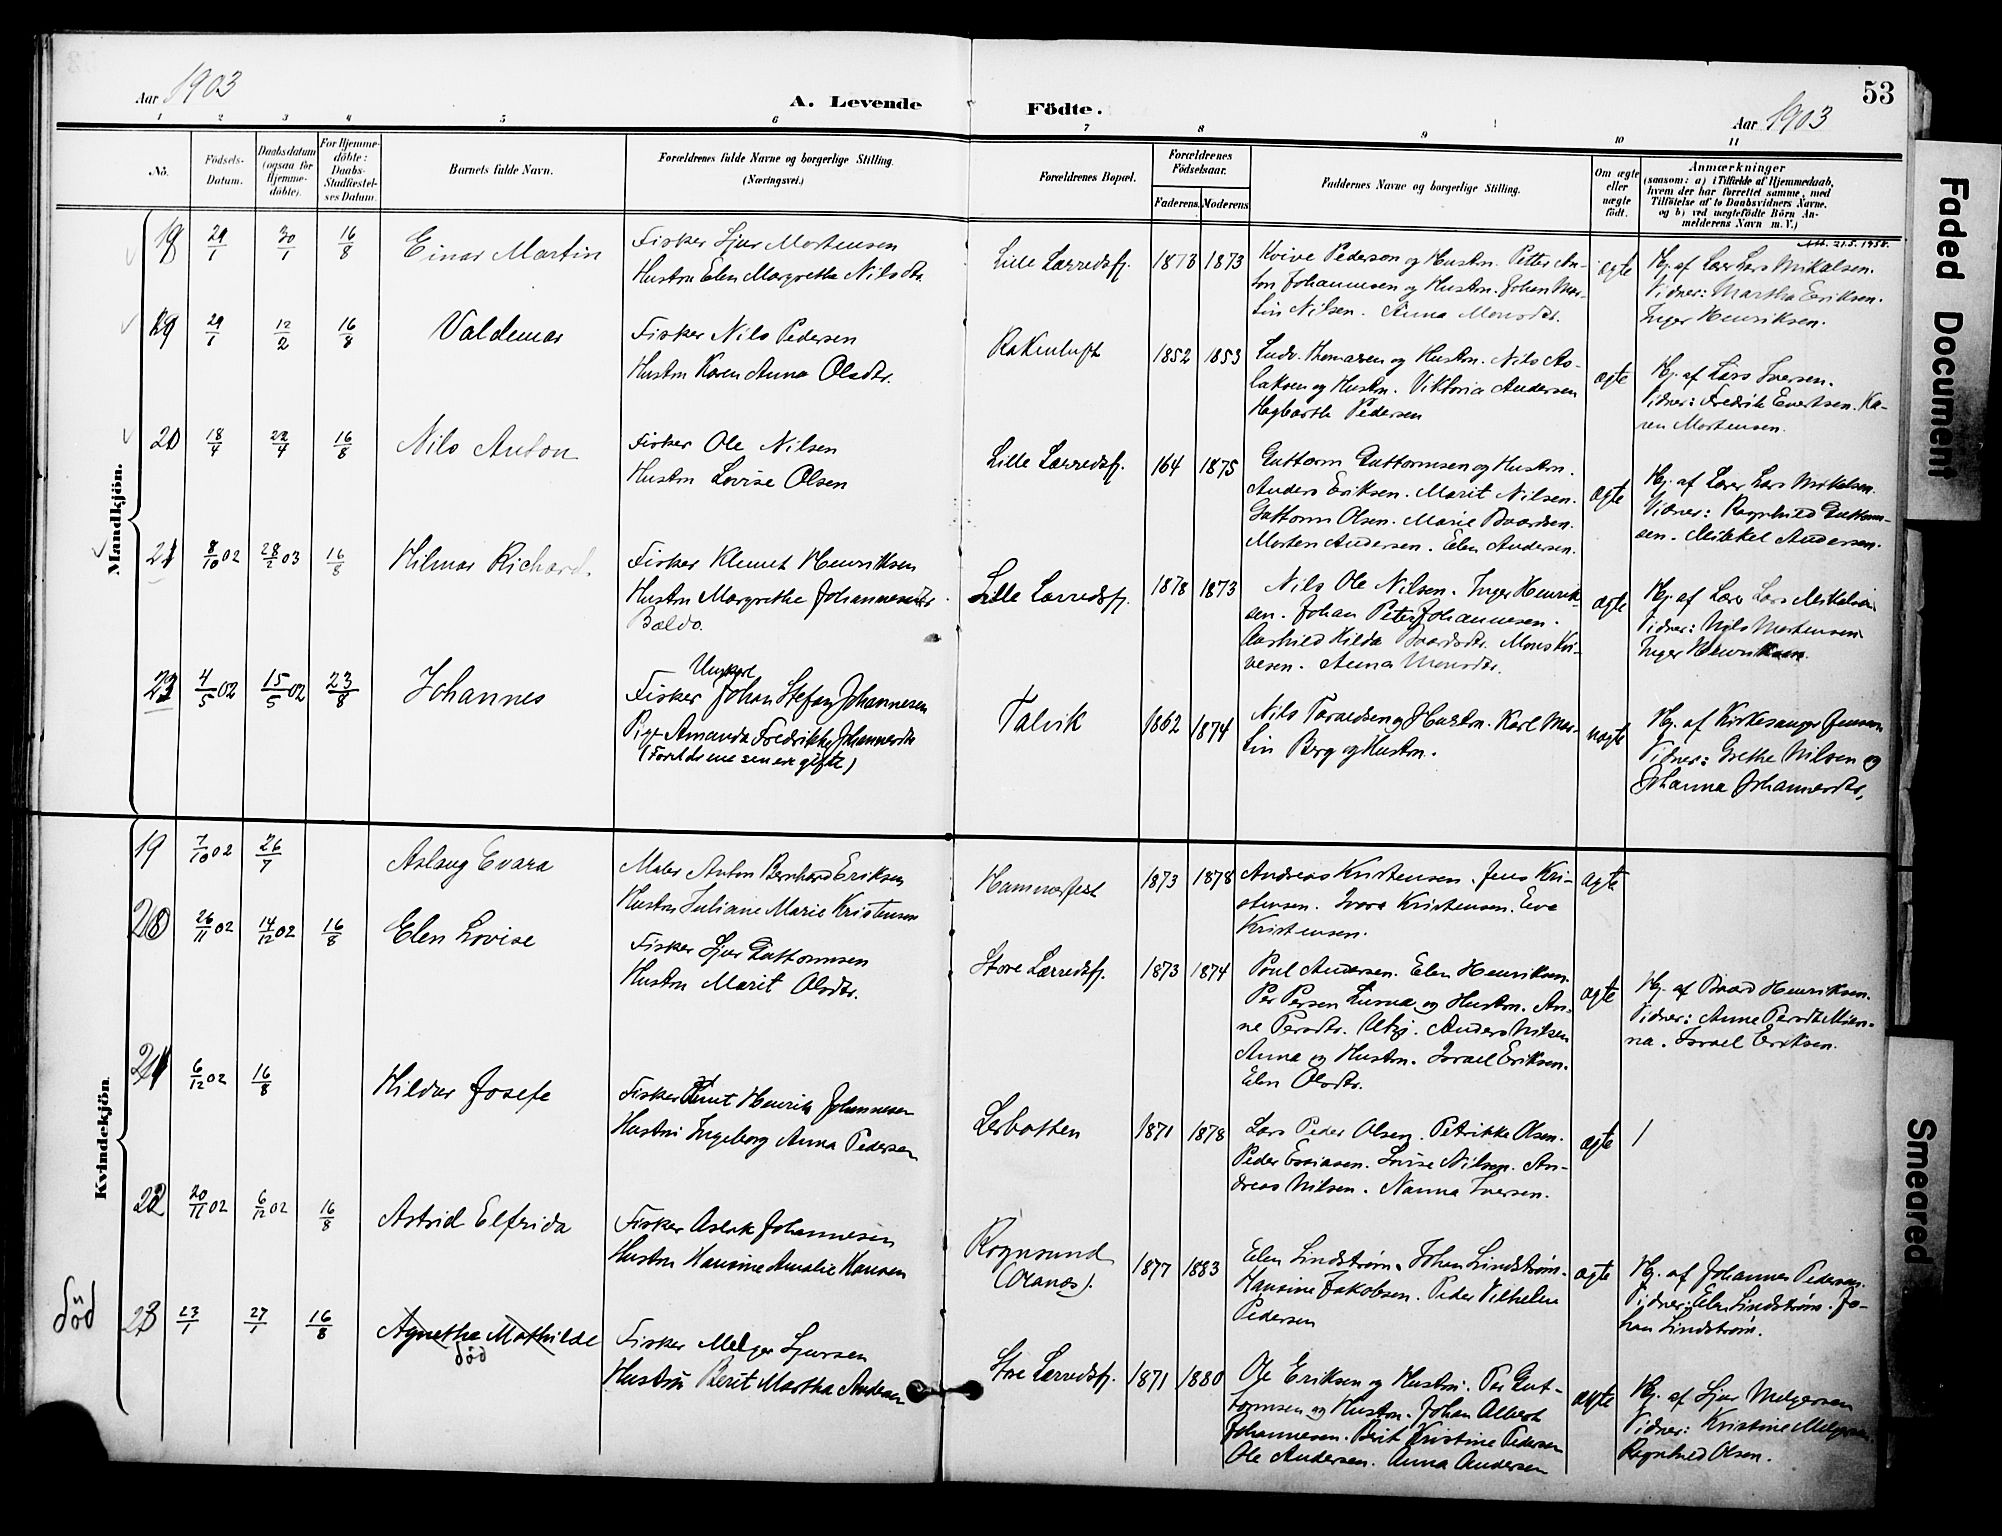 53
Aar 1903
A. Levende Födte.
Aar 1903
1 2 3 4 5 6 7 8 9 10 11
No.
Födsels-
Datum.
Daabsdatum
(ogsaa för
Hjemme-
döbte).
For Hjemme-
döbte:
Daabs-
Stadfæstel-
ses Datum.
Barnets fulde Navn.
Forældrenes fulde Navne og borgerlige Stilling.
(Næringsvei.)
Forældrenes Bopæl.
Forældrenes
Födselsaar.
Faderens. Moderens
Faddernes Navne og borgerlige Stilling.
Om ægte
eller
uægte
födt.
Anmærkninger
(saasom: a) i Tilfælde af Hjemmedaab,
hvem der har forrettet samme, med
Tilföielse af to Daabsvidners Navne.
og b) ved uægtefödte Börn An-
melderens Navn m. V.)
Mandkjön.
18 29/1 30/1 16/8 Einar Martin
Fisker Sjur Mortensen
Hustru Elen Margrethe Nilsdtr.
Lille Lærredsfj. 1873 1873
Kvive Pederson og Hustru. Petter An-
ton Johannesen og Hustru. Johan Mar-
tin Nilsen. Anna Monsdtr.
ægte
Att. 21.5.1958.
Hj. af Lærer Lars Mikalsen.
Vidner: Martha Eriksen.
Inger Henriksen.
19 29/1 12/2 16/8 Valdemar
Fisker Nils Pedersen
Hustru Karen Anna Olsdtr.
1852 1853
Ludv. Thomasen og Hustru. Nils As-
laksen og Hustru. Viktoria Andersen
Hagbarth Pedersen
ægte
Hj. af Lars Iversen.
Vidner: Fredrik Evertsen. Ka-
ren Mortensen.
20 18/4 22/4 16/8 Nils Anton
Fisker Ole Nilsen
Hustru Lovise Olsen
Lille Lærredsfj. 164 1875
Guttorm Guttormsen og Hustru.
Anders Eriksen. Marit Nilsen.
Guttorm Olsen. Marie Baardsen.
Morten Andersen. Elen Andersen.
ægte
Hj. af Lærer Lars Mikalsen.
Vidner: Ragnhild Guttorm-
sen. Mikkel Andersen.
21 8/10 02 28/2 03 16/8 Hilmar Richard.
Fisker Klemet Henriksen
Hustru Margrethe Johannesdtr.
Bældo.
Lille Lærredsfj. 1878 1873
Nils Ole Nilsen. Inger Henrik-
sen. Johan Peter Johannesen.
Aashild Hilda Baardsdtr. Mons Kvi-
vesen. Anna Monsdtr.
ægte
Hj. af Lærer Lars Mikalsen
Vidner: Nils Mortensen.
Inger Henriksen.
23 4/5 02 15/5 02 23/8 Johannes
Ungkarl
Fisker Johan Stefan Johannesen
Pige Amanda Fredrikke Johannesdtr
(Forældrene senere gifte)
Talvik 1862 1874
Nils Toraldsen og Hustru. Karl Mar-
tin Berg og Hustru.
uægte
Hj. af Kirkesanger Jensen
Vidner: Grethe Nilsen og
Johanna Johannesdtr.
Kvindekjön.
19 7/10 02 26/7 Aslaug Evara
Maler Anton Bernhard Eriksen
Hustru Juliane Marie Kristensen
Hammerfest 1873 1878
Andreas Kristensen. Jens Kri-
stensen. Ivara Kristensen. Eva
Kristensen.
ægte
20 26/11 02 14/12 02 16/8 Elen Lovise
Fisker Sjur Guttormsen
Hustru Marit Olsdtr.
Store Lærredsfj. 1873 1874
Poul Andersen. Elen Henriksen.
Per Persen og Hustru. An-
ne Persdtr. Utzi. Anders Nilsen
Anna og Hustru. Israel Eriksen.
Elen Olsdtr.
ægte
Hj. af Baard Henriksen.
Vidner: Anne Persdtr
Israel Eriksen.
21 6/12 02 16/8 Hildur Josefe
Fisker Knut Henrik Johannesen
Hustru Ingeborg Anna Pedersen
Lerbotten 1871 1878
Lars Peder Olsen. Petrikke Olsen.
Peder Esaiasen. Lovise Nilsen. An-
dreas Nilsen. Nanna Iversen.
ægte
22 20/11 02 6/12 02 16/8 Astrid Elfrida
Fisker Aslak Johannesen
Hustru Hansine Amalie Hansen
Rognsund
(Olanes). 1877 1883
Elen Lindstrøm. Johan Lindstrøm.
Hansine Jakobsen. Peder Vilhelm
Pedersen
ægte
Hj. af Johannes Pedersen.
Vidner: Elen Lindstrøm. Jo-
han Lindstrøm.
död 23 23/1 27/1 16/8 Agnetha Mathilde
död
Fisker Melger Sjursen
Hustru Berit Martha Andersen
Store Lærredsfj. 1871 1880
Ole Eriksen og Hustru. Per Gut-
tormsen og Hustru. Johan Albert
Johannesen. Berit Kristine Pedersen
Ole Andersen. Anna Andersen
ægte
Hj. af Sjur Melgersen
Vidner: Kristine Melgersen.
Ragnhild Olsen.
Faded Document
Smeared